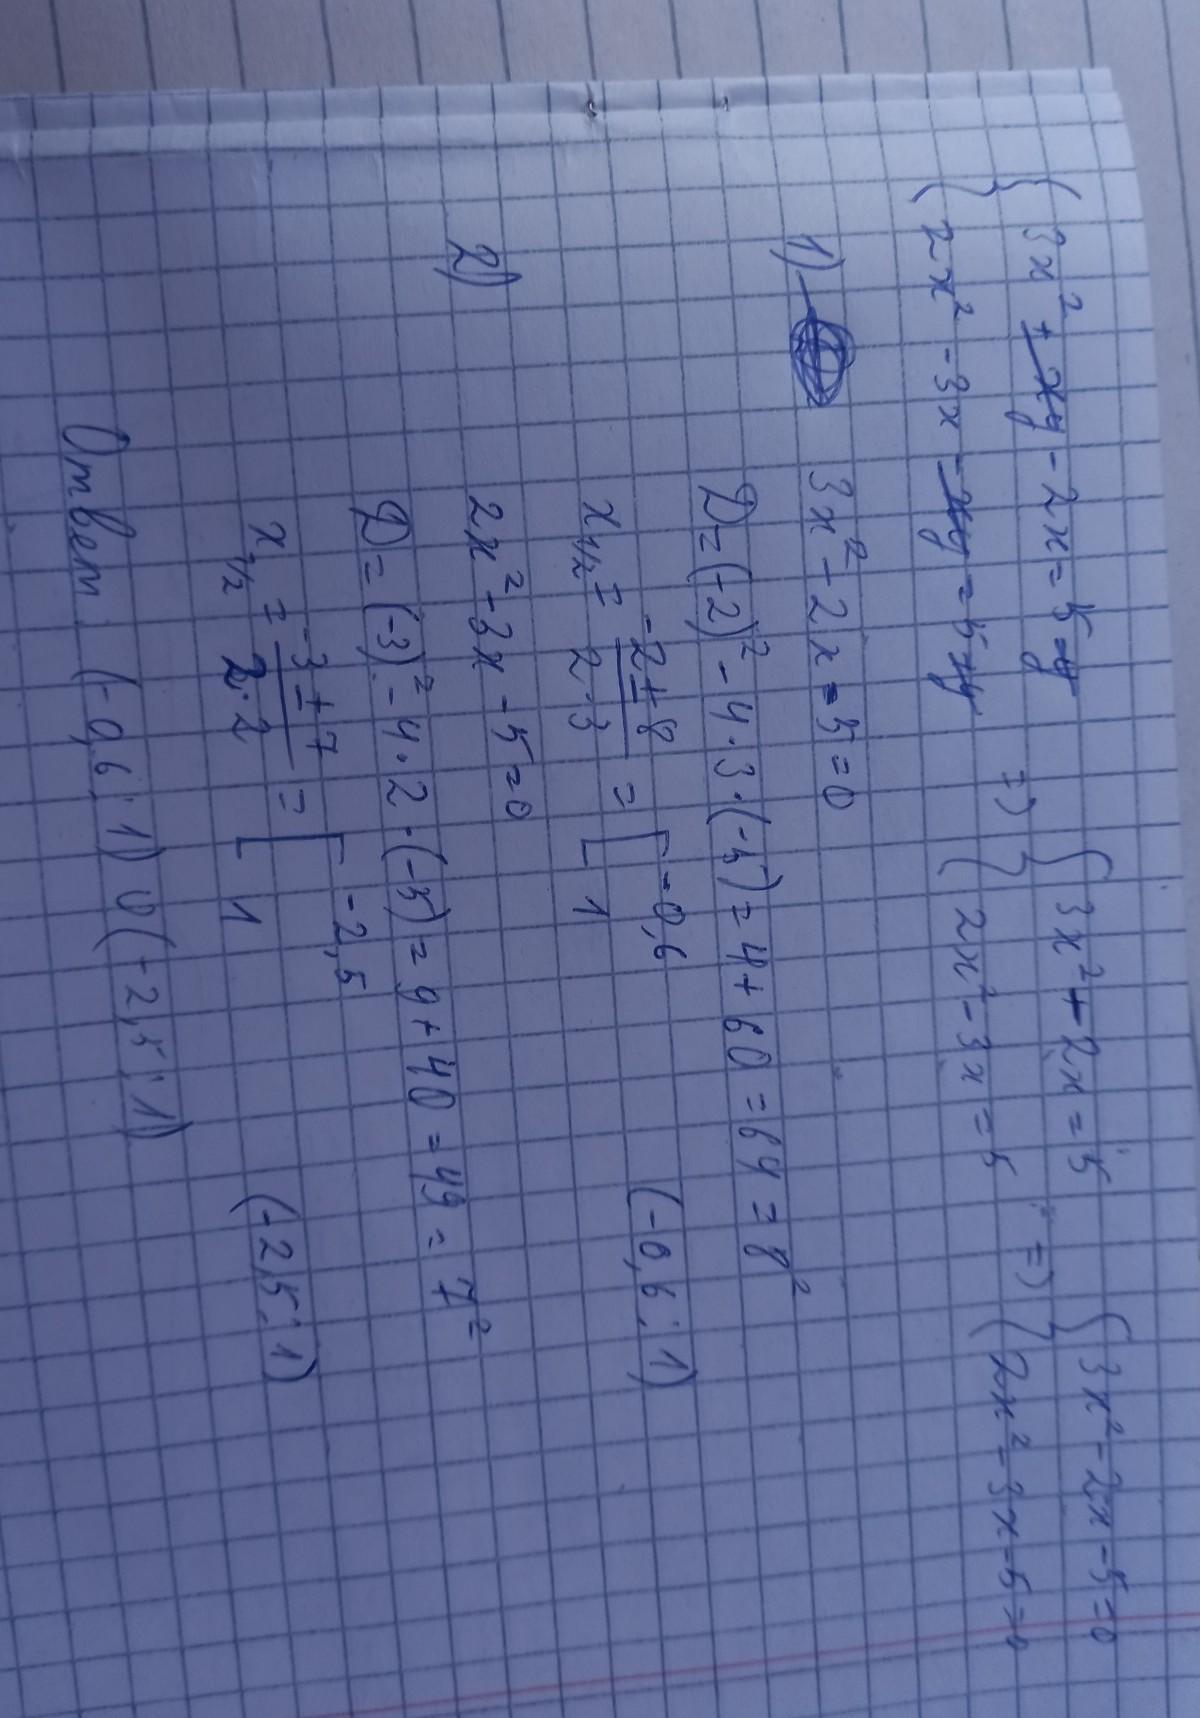 { 3x² + xy - 2x = 5 - y => { 3x² - 2x = 5 => { 3x² - 2x - 5 = 0
{ 2x² - 3x - xy = 5 + y { 2x² - 3x = 5 { 2x² - 3x - 5 = 0
1) 3x² - 2x - 5 = 0
D = (-2)² - 4 · 3 · (-5) = 4 + 60 = 64 = 8²
x 1/2 = (-2 ± 8)/(2 · 3) = [ -0,6 ; 1 (-0,6 ; 1)
2) 2x² - 3x - 5 = 0
D = (-3)² - 4 · 2 · (-5) = 9 + 40 = 49 = 7²
x 1/2 = (-3 ± 7)/(2 · 2) = [ -2,5 ; 1 (-2,5 ; 1)
Ответ: (-0,6 ; 1) U (-2,5 ; 1)